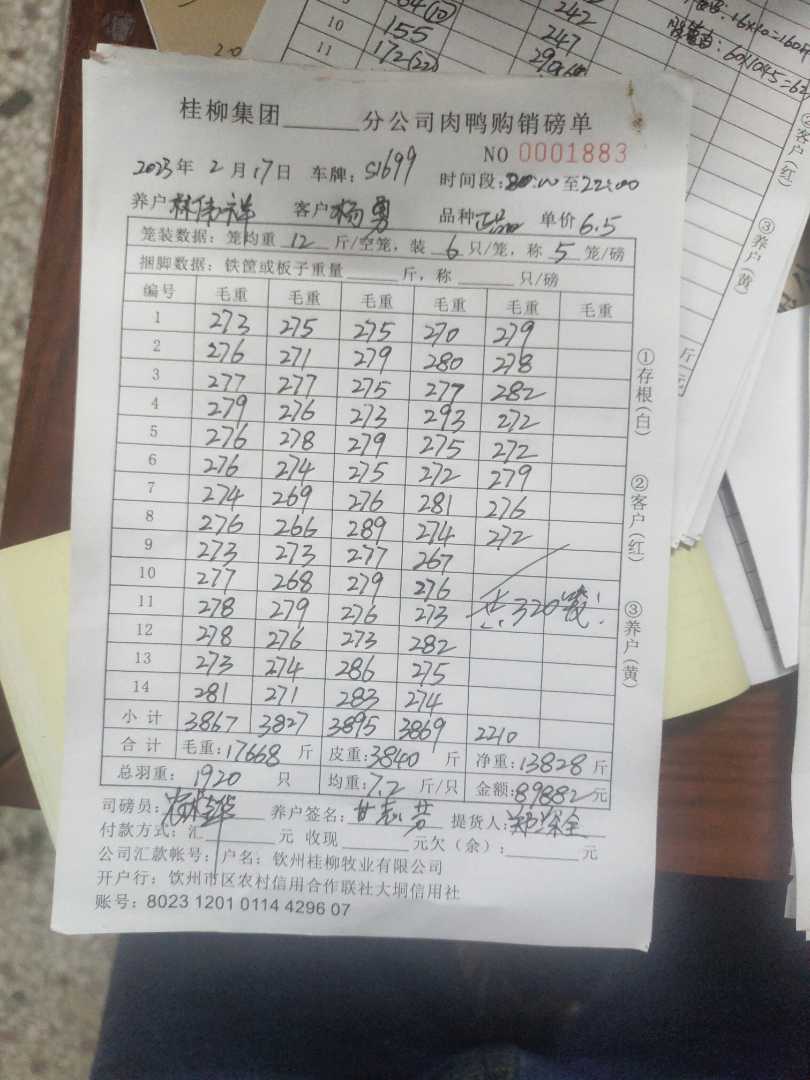 10 155 247
11 172(22)
桂柳集团______分公司肉鸭购销磅单
NO 0001883
2023年 2月17日 车牌: S1699 时间段:20:00至22:00
养户林伟祥 客户杨勇 品种正品 单价6.5
笼装数据: 笼均重 12 斤/空笼, 装 6 只/笼, 称 5 笼/磅
捆脚数据: 铁筐或板子重量______斤, 称______只/磅
编号 毛重 毛重 毛重 毛重 毛重 毛重
1 273 275 275 270 279
2 276 271 279 280 278
3 277 277 275 277 282
4 279 276 273 293 272
5 276 278 279 275 272
6 276 274 275 272 279
7 274 269 276 281 276
8 276 266 289 274 272
9 273 273 277 267
10 277 268 279 276
11 278 279 276 273 共320笼
12 278 276 273 282
13 273 274 286 275
14 281 271 283 274
小计 3867 3827 3895 3869 2210
合计 毛重:17668斤 皮重:3840斤 净重:13828斤
总羽重: 1920 只 均重:7.2斤/只 金额:89882元
司磅员: 养户签名: 提货人:
付款方式: 汇______元 收现______元欠(余):______元
公司汇款帐号: 户名: 钦州桂柳牧业有限公司
开户行: 钦州市区农村信用合作联社大垌信用社
账号: 8023 1201 0114 4296 07
①存根(白)
②客户(红)
③养户(黄)
②客户(红)
③养户(黄)